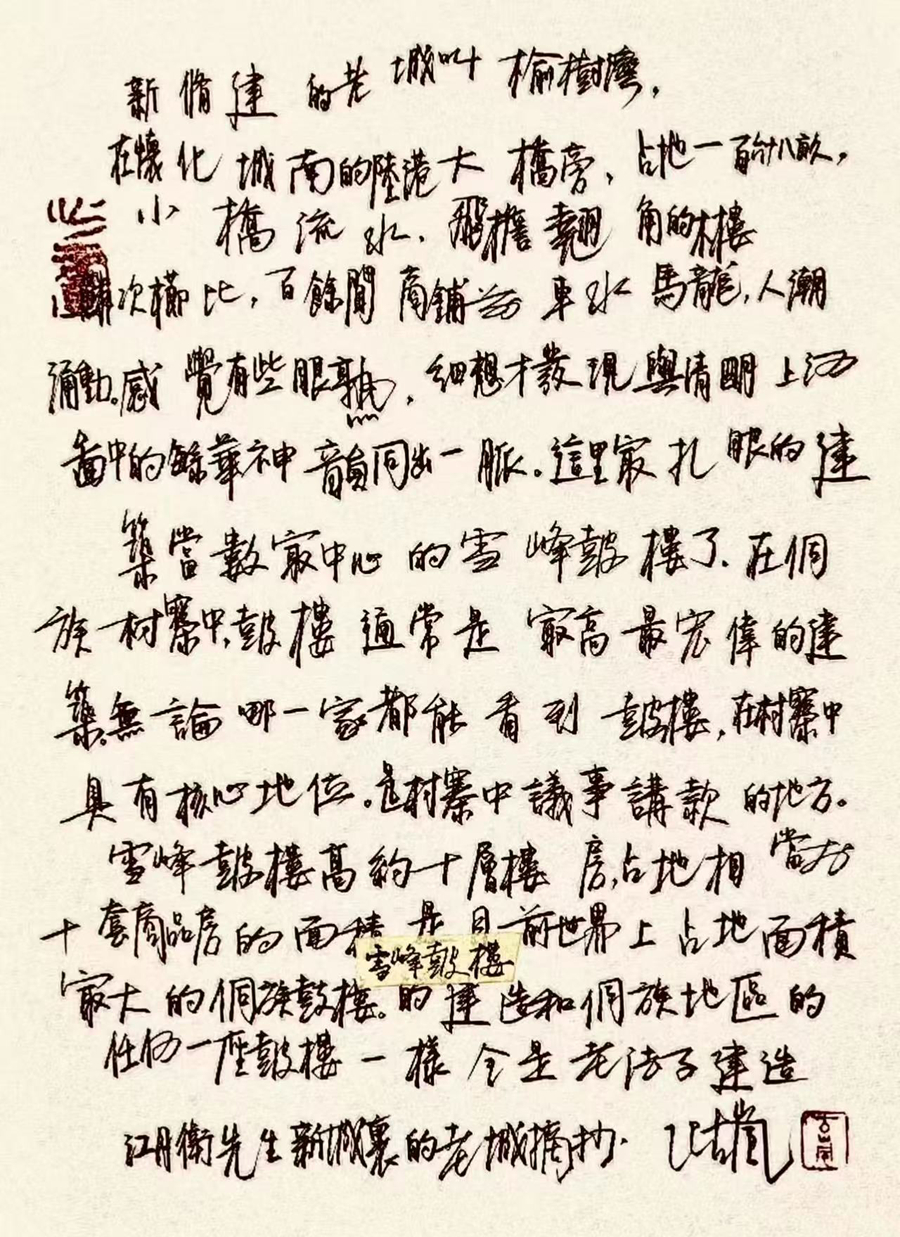 新脩建的老城叫榆樹灣，
在懷化城南的陸港大橋旁，占地一百八畝，
小橋流水、飛檐翹角的木樓
鱗次櫛比，百餘間商鋪前車水馬龍，人潮
涌動。感覺有些眼熟，細想才發現與清明上河
畫中的繁華神韻同出一脈。這里寂扎眼的建
築當數寂中心的雪峰鼓樓了。在侗
族村寨中，鼓樓通常是寂高最宏偉的建
築。無論哪一家都能看到鼓樓，在村寨中
具有核心地位。是村寨中議事講款的地方。
雪峰鼓樓高約十層樓房，占地相當於
十套商品房的面積是目前世界上占地面積
雪峰鼓樓
寂大的侗族鼓樓。的建造和侗族地區的
任何一座鼓樓一樣全是老法子建造
江月衛先生新城裏的老城摘抄